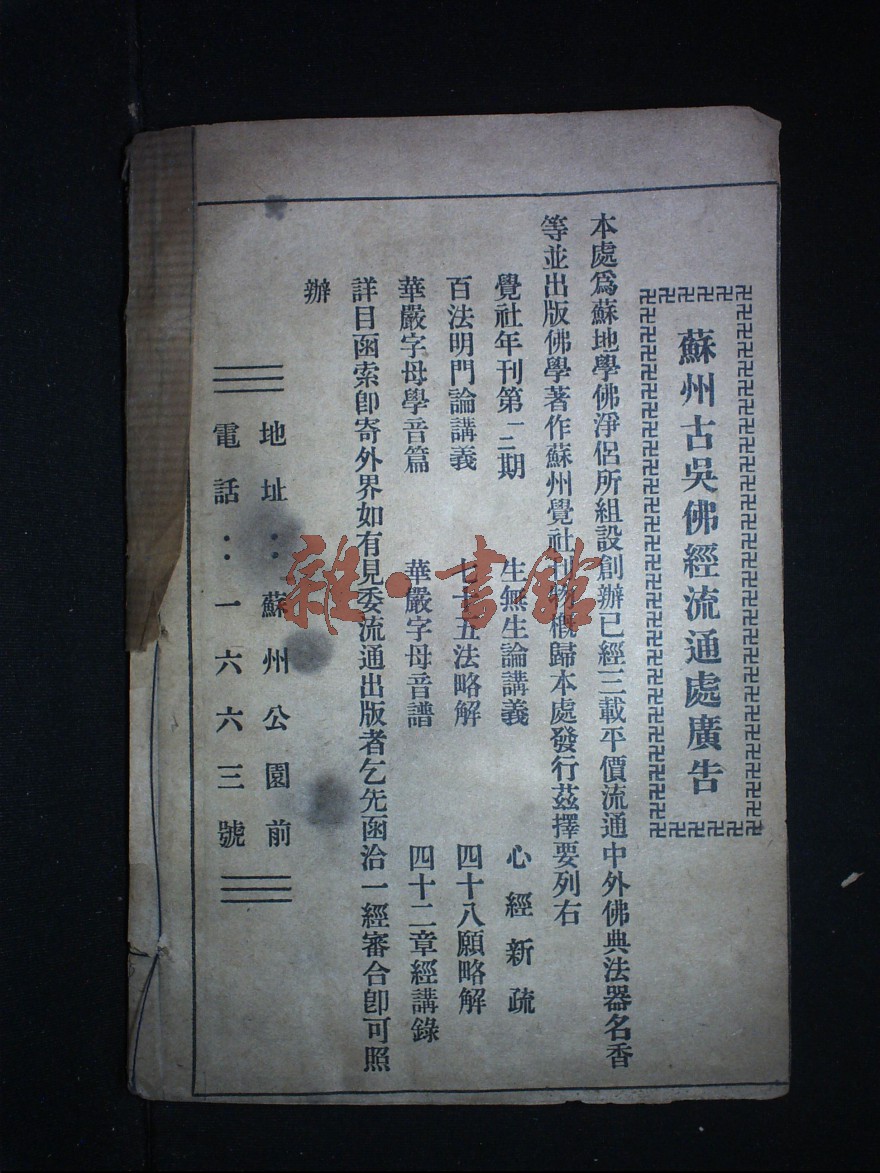 蘇州古吳佛經流通處廣告
本處爲蘇地學佛淨侶所組設創辦已經三載平價流通中外佛典法器名香
等並出版佛學著作蘇州覺社刊物概歸本處發行茲擇要列右
覺社年刊第一二期　生無生論講義　心經新疏
百法明門論講義　七十五法略解　四十八願略解
華嚴字母學音篇　華嚴字母音譜　四十二章經講錄
詳目函索卽寄外界如有見委流通出版者乞先函洽一經審合卽可照
辦
地址：蘇州公園前
電話：一六六三號
雜·書館